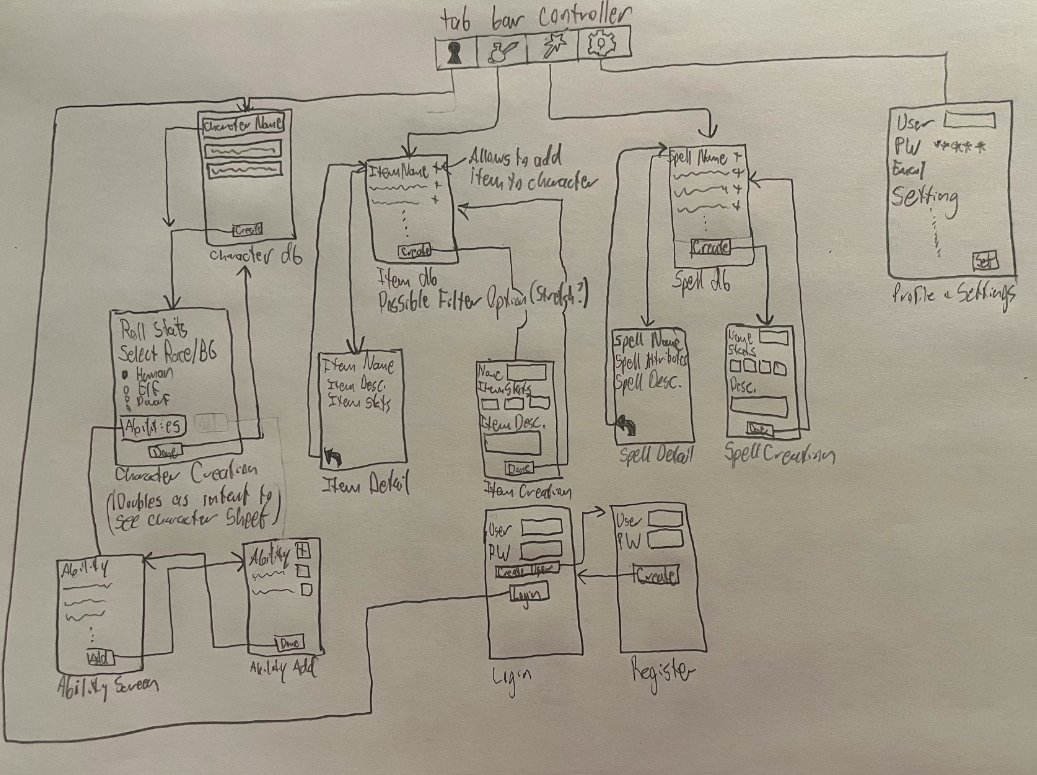 tab bar controller
Character Name
Create
Character db
Item Name +
+
+
Create
Item db
Possible Filter Option (Stretch?)
Allows to add
item to character
Spell Name +
+
+
Create
Spell db
User
PW *****
Email
Setting
Set
Profile & Settings
Roll Stats
Select Race/BG
Human
Elf
Dwarf
Abilities
Done
Character Creation
(Doubles as intent to
see character sheet)
Item Name
Item Desc.
Item Stats
Item Detail
Name
Item Stats
Item Desc.
Done
Item Creation
Spell Name
Spell Attributes
Spell Desc.
Spell Detail
Name
Stats
Desc.
Done
Spell Creation
Ability
Add
Ability Screen
Ability +
Done
Ability Add
User
PW
Create User
Login
Login
User
PW
Create
Register